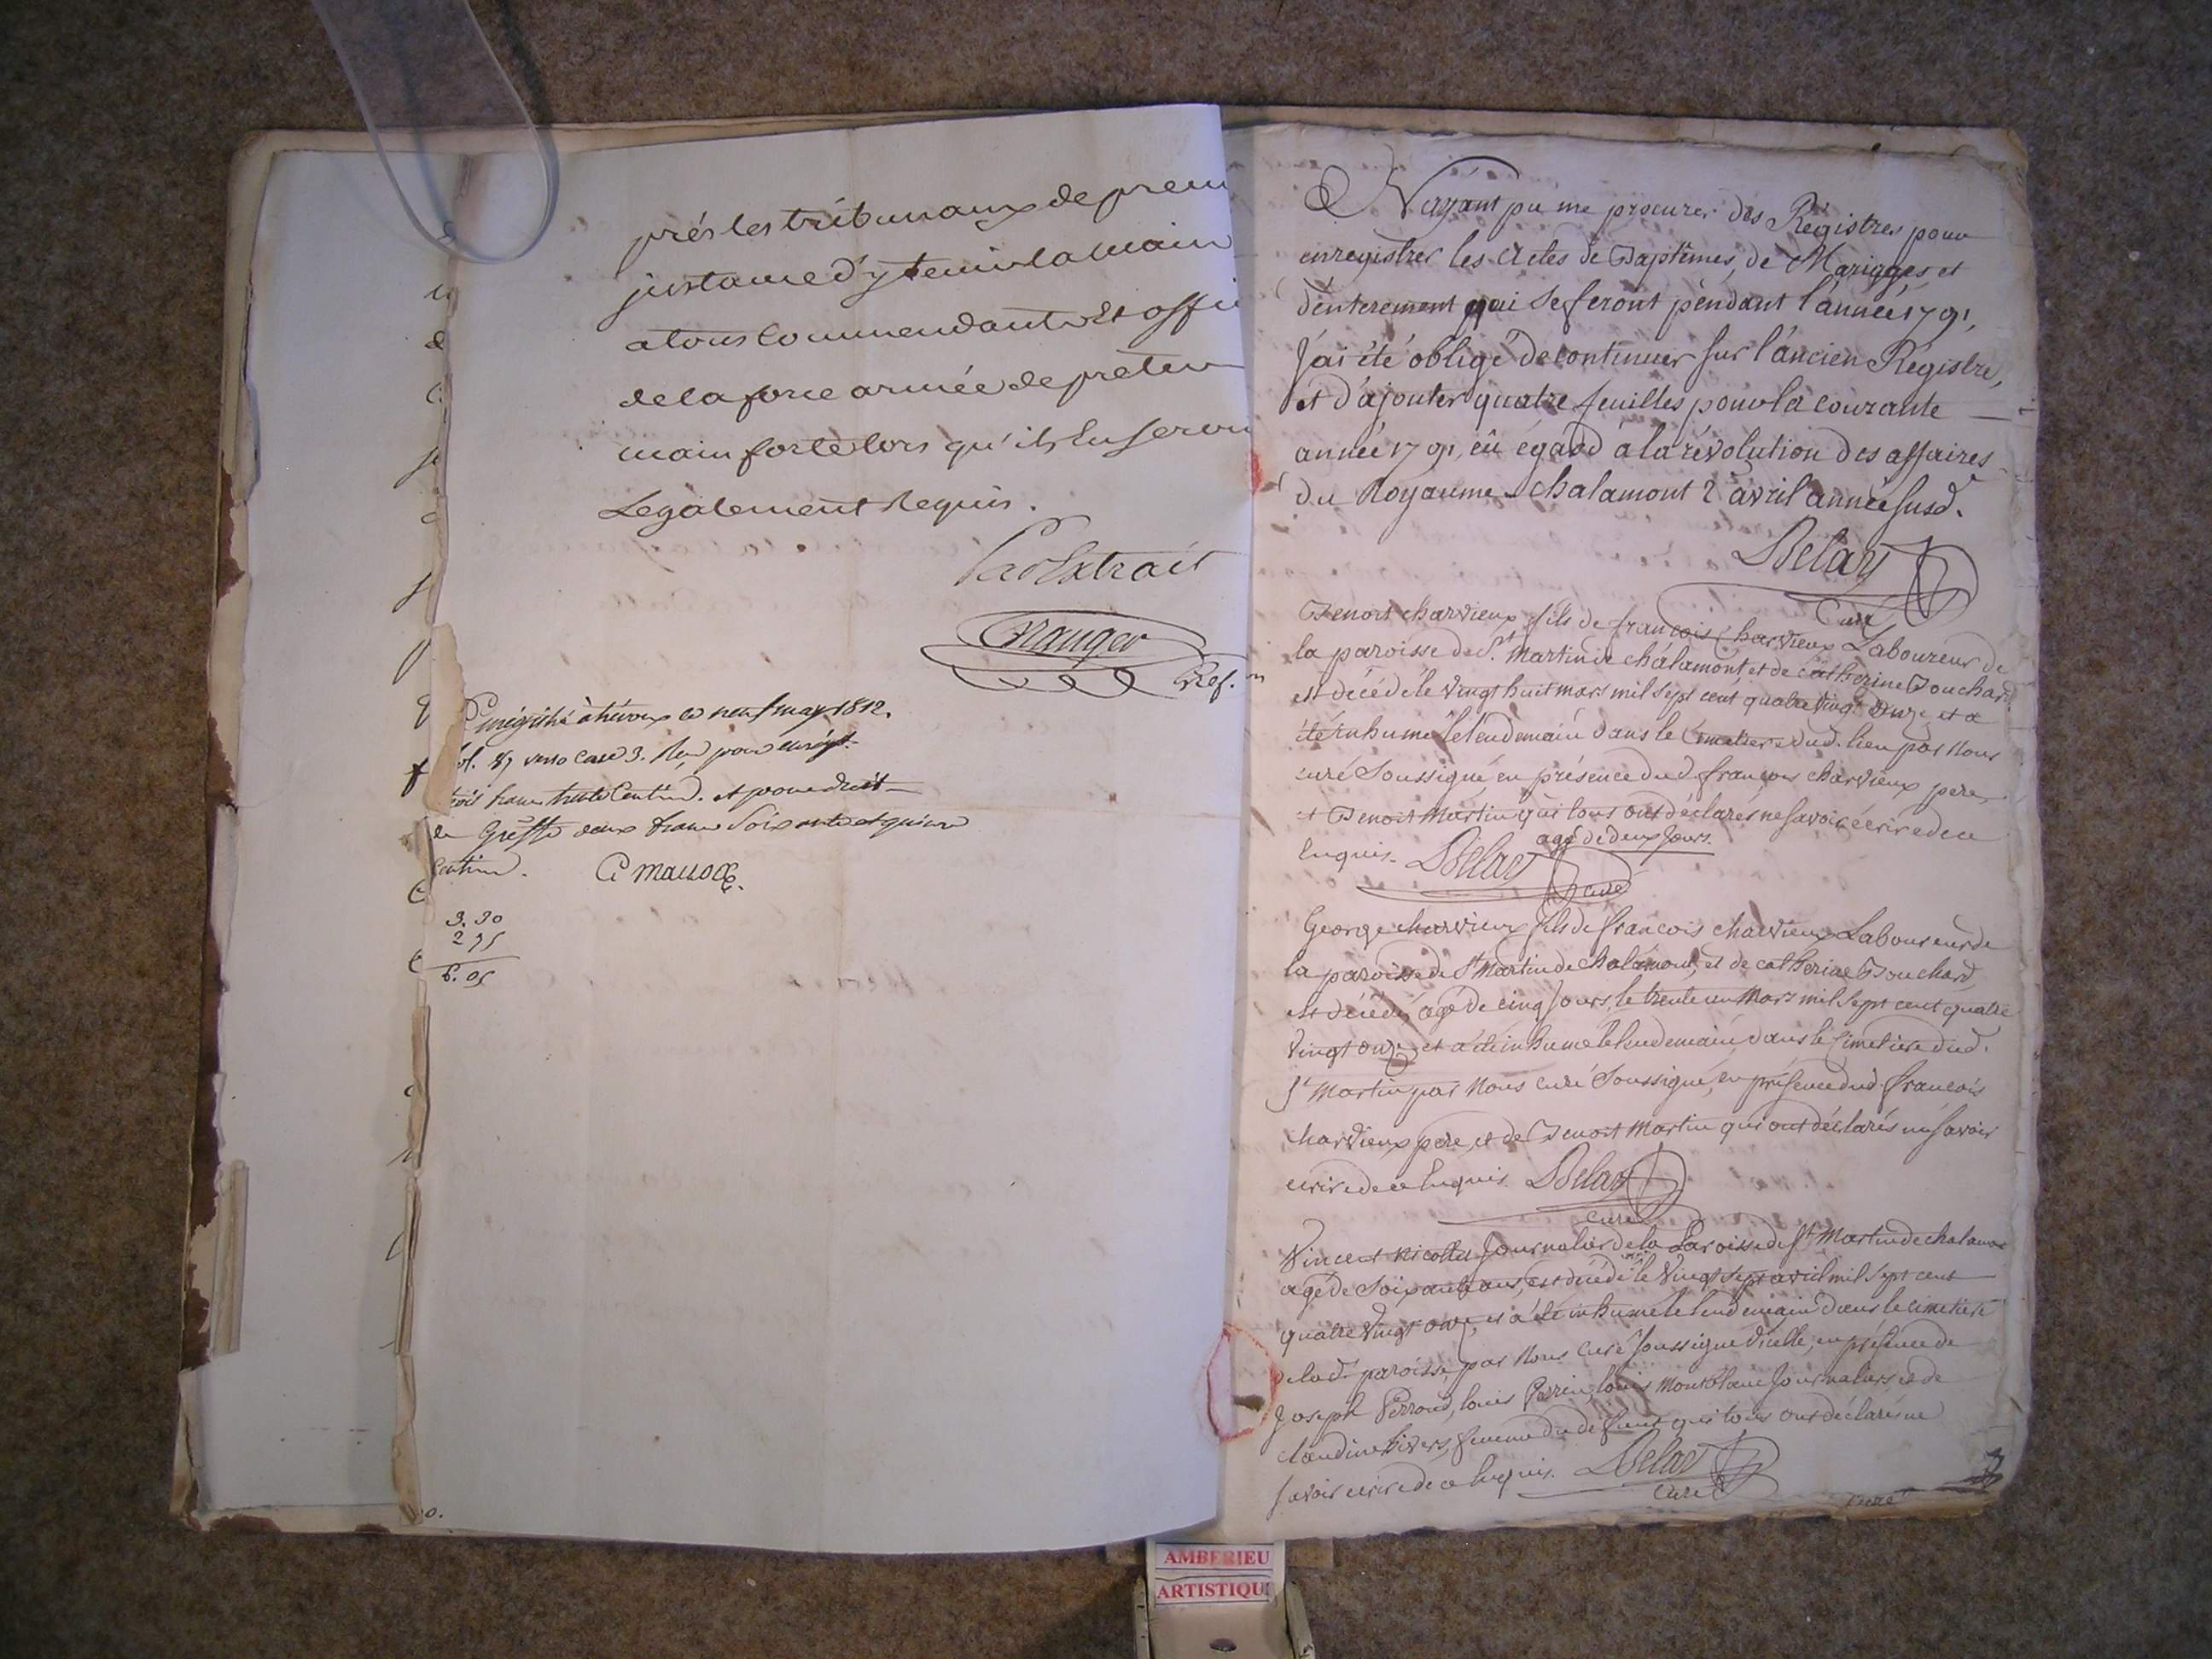 près les tribunaux de prem
justance d'y tenir la main
a tous Commendants et offi
de la force armée de preter
main forte lors qu'ils En seron
Legalement Requis.
Par Extrait
Gref.
Enrégistré à trévoux le neuf may 1812.
fol. 87 verso case 3. Reçu pour enregt.
trois francs trente Centim. et pour droit
de Greffe deux francs Soixante et quinze
Centim.
3.30
2 75
6.05
N'ayant pu me procurer des Régistres pour
enregistrer les Actes de Baptêmes, de Mariages, et
d'enterement qui se feront pendant l'année 1791,
J'ai été obligé de continuer sur l'ancien Régistre,
et d'ajouter quatre feuilles pour la courante
année 1791, eû égard a la révolution des affaires
du Royaume. chalamont 2 avril année susd.
Delay
Curé
Benoit charvieux fils de françois Charvieux Laboureur de
la paroisse de St. Martin de chalamont, et de Catherine Bouchard
est décédé le vingt huit mars mil sept cent quatre vingt onze, et a
été inhumé le lendemain dans le Cimetiere dud. lieu par Nous
curé Soussigné, en présence dud. françois charvieux pere,
et Benoit Martin qui tous ont déclarés ne savoir écrire de ce
agé de deux jours.
Enquis. Delay
curé
George charvieux fils de françois charvieux Laboureur de
la paroisse de St Martin de chalamont, et de catherine Bouchard,
est décédé, agé de cinq Jours, le trente un Mars mil sept cent quatre
vingt onze, et a été inhumé le lendemain, dans le Cimetiere dud.
St Martin par Nous curé Soussigné, en présence dud. françois
charvieux pere, et de Benoit Martin qui ont déclarés ne savoir
ecrire de ce Enquis. Delay
curé
Vincent Nicollet Journalier de la Paroisse de St Martin de chalamont
agé de Soixante ans, est décédé le Vingt sept avril mil sept cent
quatre vingt onze, et a été inhumé le lendemain dans le cimetiere
de lad. paroisse, par Nous Curé soussigné d'icelle, en présence de
Joseph Perroud, louis Perrin, louis Montblanc Journaliers, et de
claudine hivers, femme du défunt qui tous ont déclarés ne
savoir ecrire de ce Enquis. Delay
curé
curé
AMBERIEU
ARTISTIQU